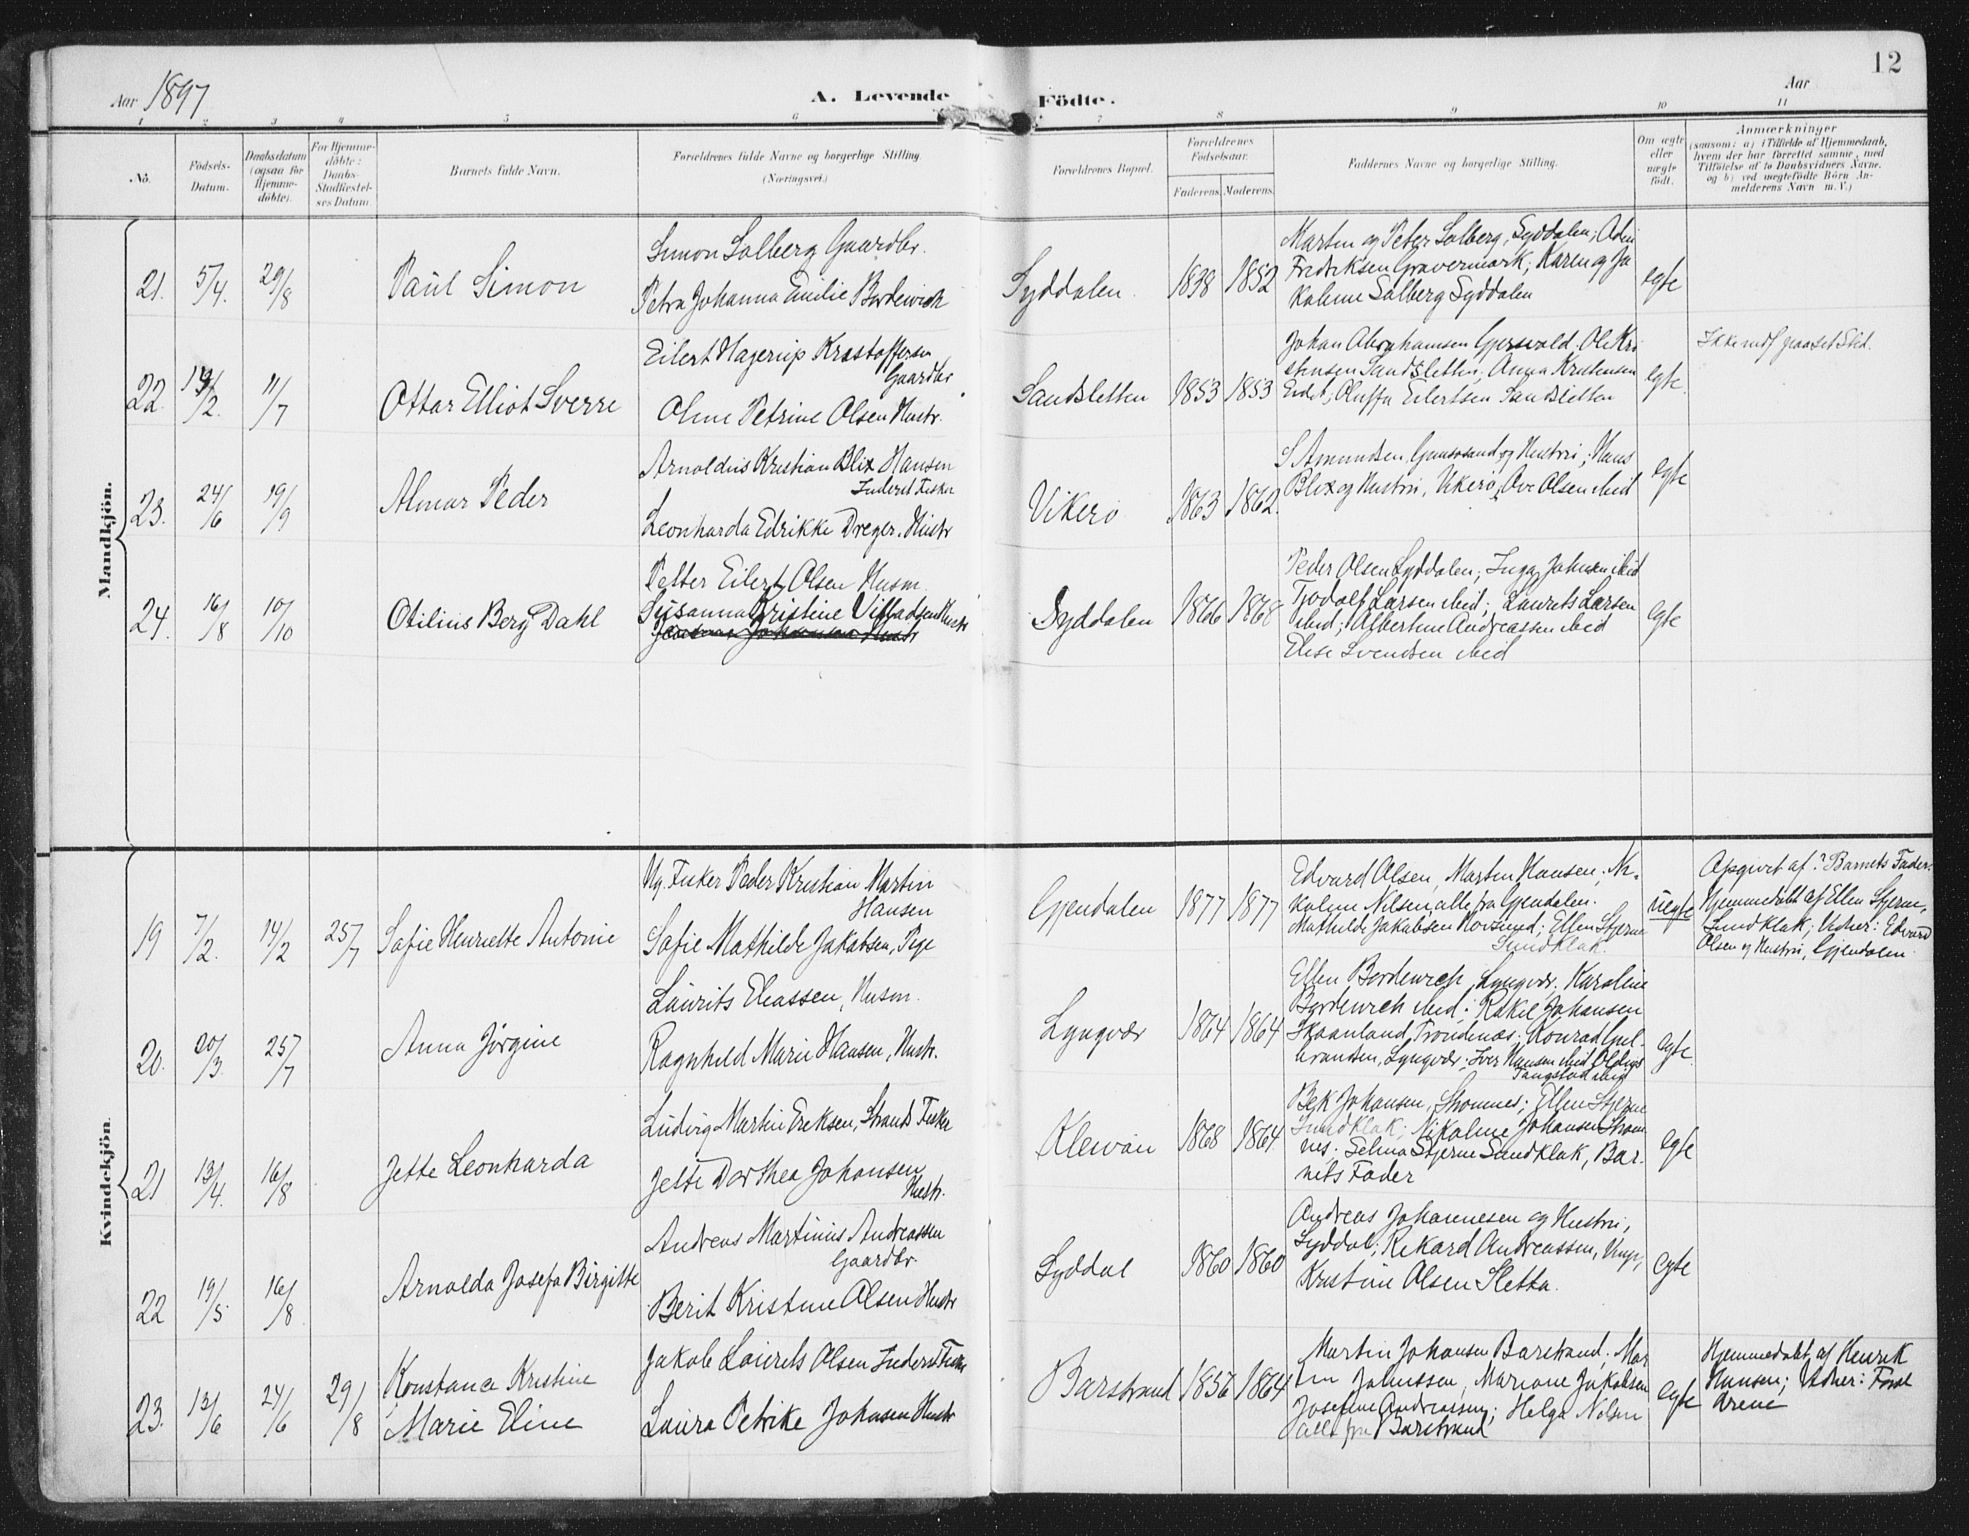 12
Aar 1897
A. Levende Födte.
Aar
1 2 3 4 5 6 7 8 9 10 11
No.
Födsels-Datum.
Daabsdatum (ogsaa for Hjemme-döbte).
For Hjemme-döbte: Daabs-Stadfæstel-ses Datum.
Barnets fulde Navn.
Forældrenes fulde Navne og borgerlige Stilling. (Næringsvei.)
Forældrenes Bopæl.
Forældrenes Födselsaar.
Faderens. Moderens.
Faddernes Navne og borgerlige Stilling.
Om ægte eller uægte födt.
Anmærkninger
(saasom: a) i Tilfælde af Hjemmedaab, hvem der har forrettet samme, med Tilföielse af to Daabsvidners Navne. og b) ved uegtefödte Börn An-melderens Navn m. V.)
Mandkjön.
21. 5/4. 29/8 Paul Simon
Simon Solberg Gaardbr.
Petra Johanna Emilie Bordewick
Syddalen. 1838 1852
Martin og Peter Solberg, Syddalen;
Fredriksen Gravermark; Karen og Ja
kobine Solberg Syddalen
egte
22. /2. 11/7 Ottar Elliot Sverre
Eilert Hagerup Kristoffersen
Gaardbr
Oline Petrine Olsen Hustr.
Sandsletten 1853 1853
Johan Abrahamsen Gjersvold. Ole Kri
stensen Sandsletten; Anna Kristensen
Eidet; Oluffa Eilertsen Sandsletten
egte.
23. 24/6 19/9 Almar Peder
Arnoldus Kristian Blix Hansen
Inderst Fisker
Leonharda Edrikke Dreyer. Hustr
Vikerø 1863 1862.
S Amundsen, og Hustru; Hans
Blix og Hustru, Vikerø; Ove Olsen ibid
egte
24. 16/8 10/10 Otilius Berg Dahl
Petter Eilert Olsen Husm
Susanna Kristine Villadsen Hustr
Syddalen 1866 1868
Peder Olsen Syddalen; Inga Johnsen ibid
Tjodolf Larsen ibid; Laurits Larsen
ibid; Albertine Andreassen ibid
Elise Svendsen ibid
egte
Kvindekjön.
19 7/2. 14/2 25/7 Sofie Henriette Antonie
Ug. Fisker Peder Kristian Martin
Hansen
Sofie Mathilde Jakobsen, Pige
Gjendalen 1877 1877
Edvard Olsen, Martin Hansen, Ni-
koline Nilsen, alle fra Gjendalen.
Mathilde Jakobsen; Ellen Stjerne
Sundklak.
uegte
Opgivet af? Barnets Fader.
Hjemmedøbt af Ellen Stjerne,
Sundklak; Vidner: Edvard
Olsen og Hustru, Gjendalen.
20. 20/3 25/7 Anna Jørgine
Laurits Eliassen, Husm.
Ragnhild Marie Hansen, Hustr.
Lyngvær 1864 1864
Ellen Bordewich, Lyngvær. Karoline
Bordewich ibid; Rakel Johansen
Skaanland, Trondenæs; Konrad Gul-
brandsen, Lyngvær; Iver Hansen ibid
egte.
21 13/4. 16/8 Jette Leonharda
Ludvig Martin Eriksen, Strands. Fisker
Jette Dorthea Johansen
Hustr.
Kleivan 1868 1864
Johansen, Stromnes; Ellen Stjerne
Sundklak; Nikoline Johansen Strom
nes; Selma Stjerne Sundklak, Bar-
nets Fader
egte
22 19/5. 16/8 Arnolda Josefa Birgitte
Andreas Martinus Andreassen
Gaardbr.
Berit Kristine Olsen Hustr
Syddal 1860 1860
Andreas Johannesen og Hustru,
Syddal; Rikard Andreassen,
Kristine Olsen Sletta.
egte
23. 13/6 24/6 29/8 Konstance Kristine
Marie Eline
Jakob Laurits Olsen Inderst Fisker
Laura Petrike Johnsen Hustr
Barstrand 1856 1864
Martin Johansen Barstrand; Mar
tin Johnssen, Mariane Jakobsen
Josefine Andreassen; Helga Nilsen
alle fra Barstrand
egte
Hjemmedøbt af Henrik
Hansen; Vidner: Foræl
drene